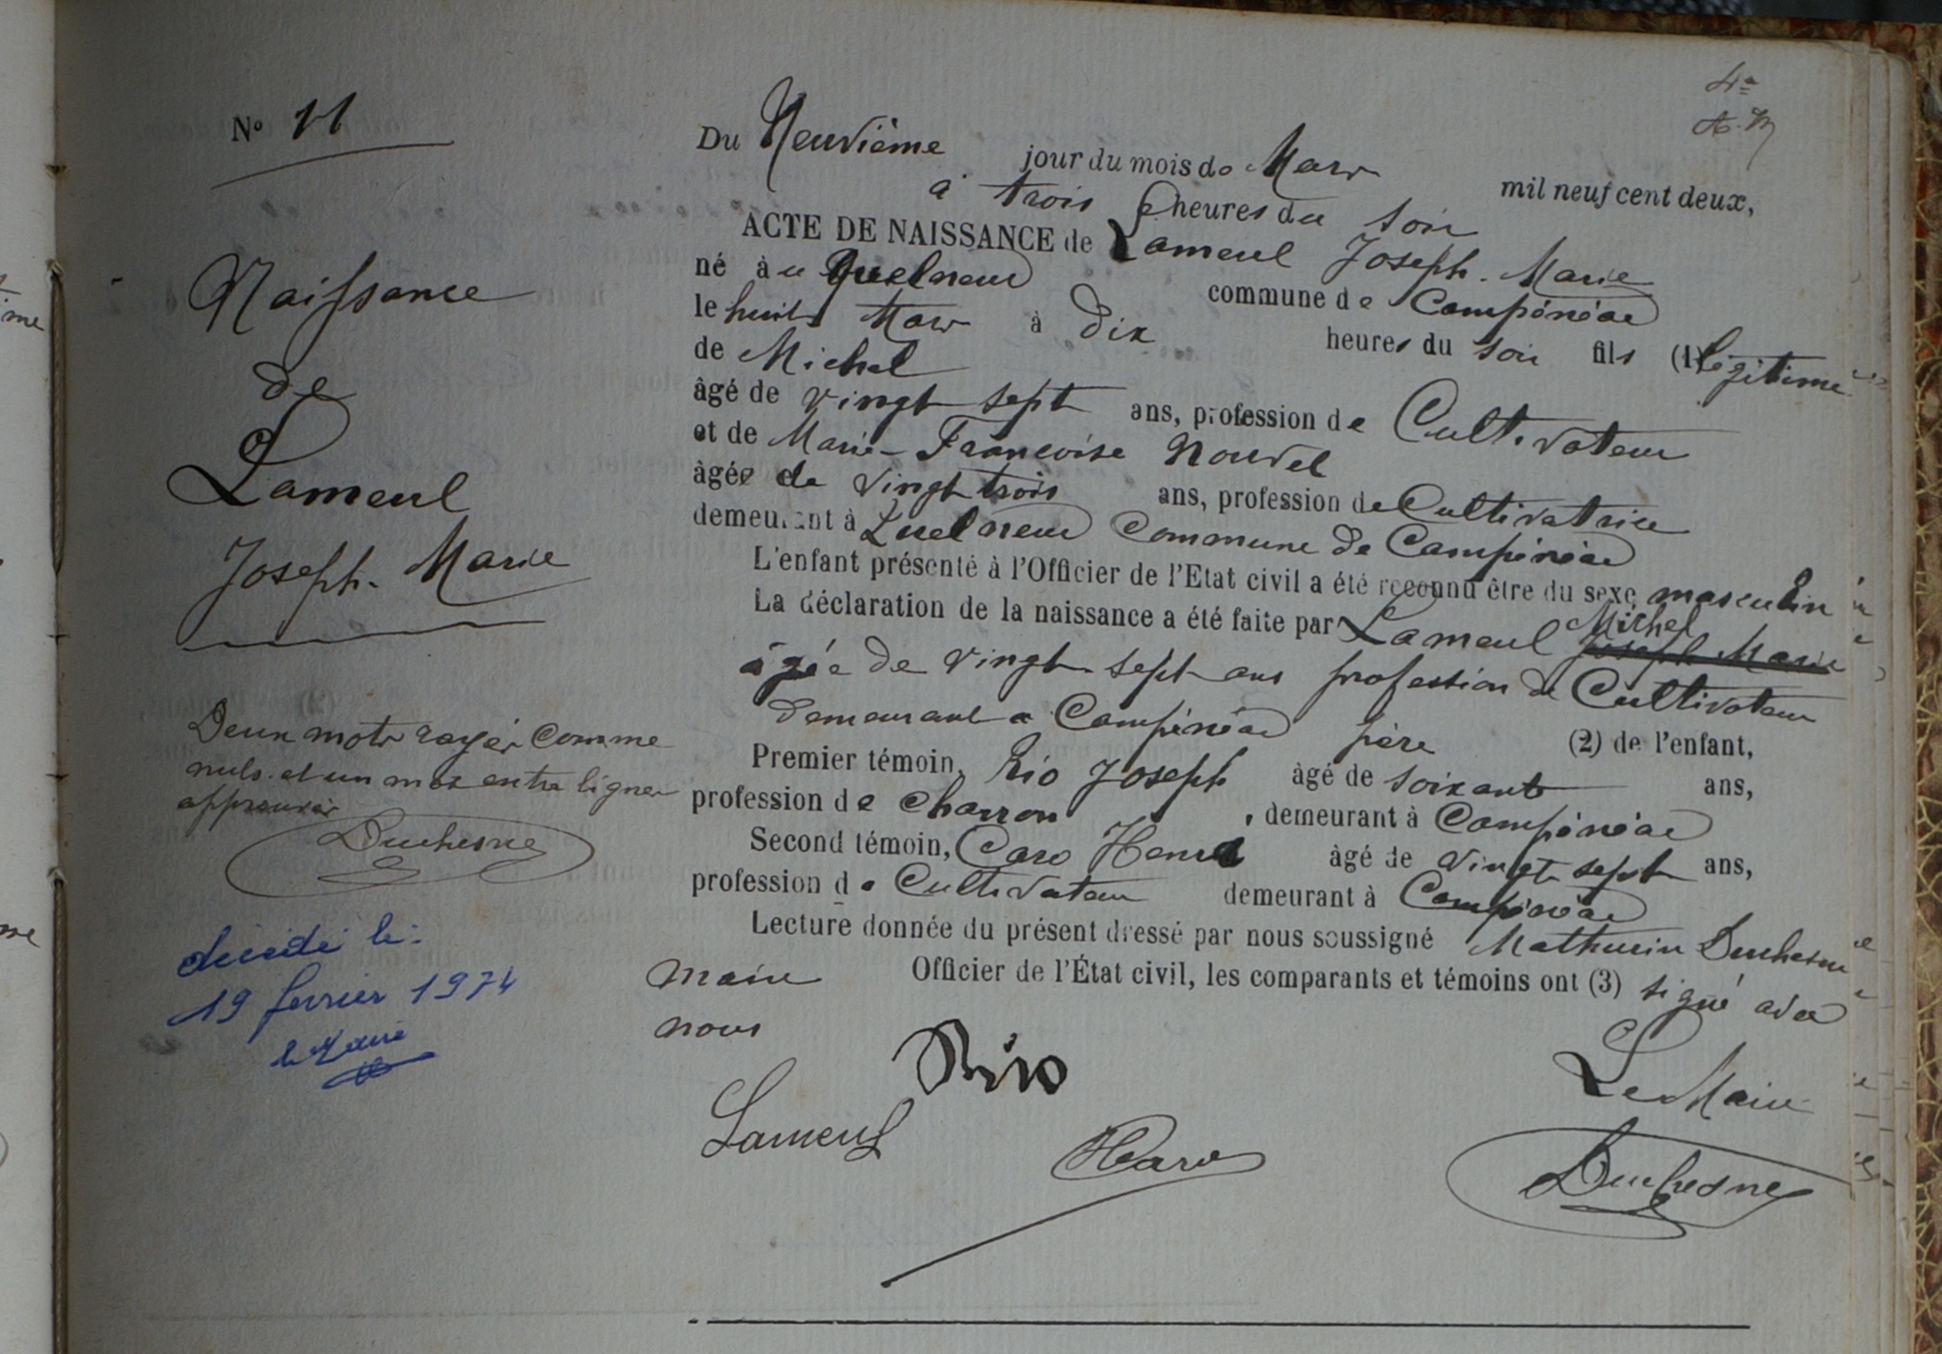 4e
N° 11
Du Neuvième jour du mois de Mars mil neuf cent deux,
à trois heures du soir
ACTE DE NAISSANCE de Lameul Joseph-Marie
né à u Quelneuc commune de Campénéac
le huit Mars à Dix heures du soir fils (1) légitime
de Michel
âgé de vingt sept ans, profession de Cultivateur
et de Marie-Françoise Nouvel
âgée de vingt trois ans, profession de Cultivatrice
demeurant à Quelneuc Commune de Campénéac
L'enfant présenté à l'Officier de l'Etat civil a été reconnu être du sexe masculin
La déclaration de la naissance a été faite par Lameul Michel Joseph Marie
âgée de vingt-sept ans profession de Cultivateur
demeurant a Campénéac père (2) de l'enfant,
Premier témoin, Rio Joseph âgé de soixante ans,
profession de charron, demeurant à Campénéac
Second témoin, Caro Henri âgé de vingt sept ans,
profession de Cultivateur demeurant à Campénéac
Lecture donnée du présent dressé par nous soussigné Mathurin Duchesne
maire Officier de l'État civil, les comparants et témoins ont (3) signé avec
nous
Rio
Le Maire
Lameul
HCaro
Duchesne
Naissance
de
Lameul
Joseph-Marie
Deux mots rayés comme
nuls et un mot entre lignes
approuvés
Duchesne
décédé le:
19 février 1974
le Maire